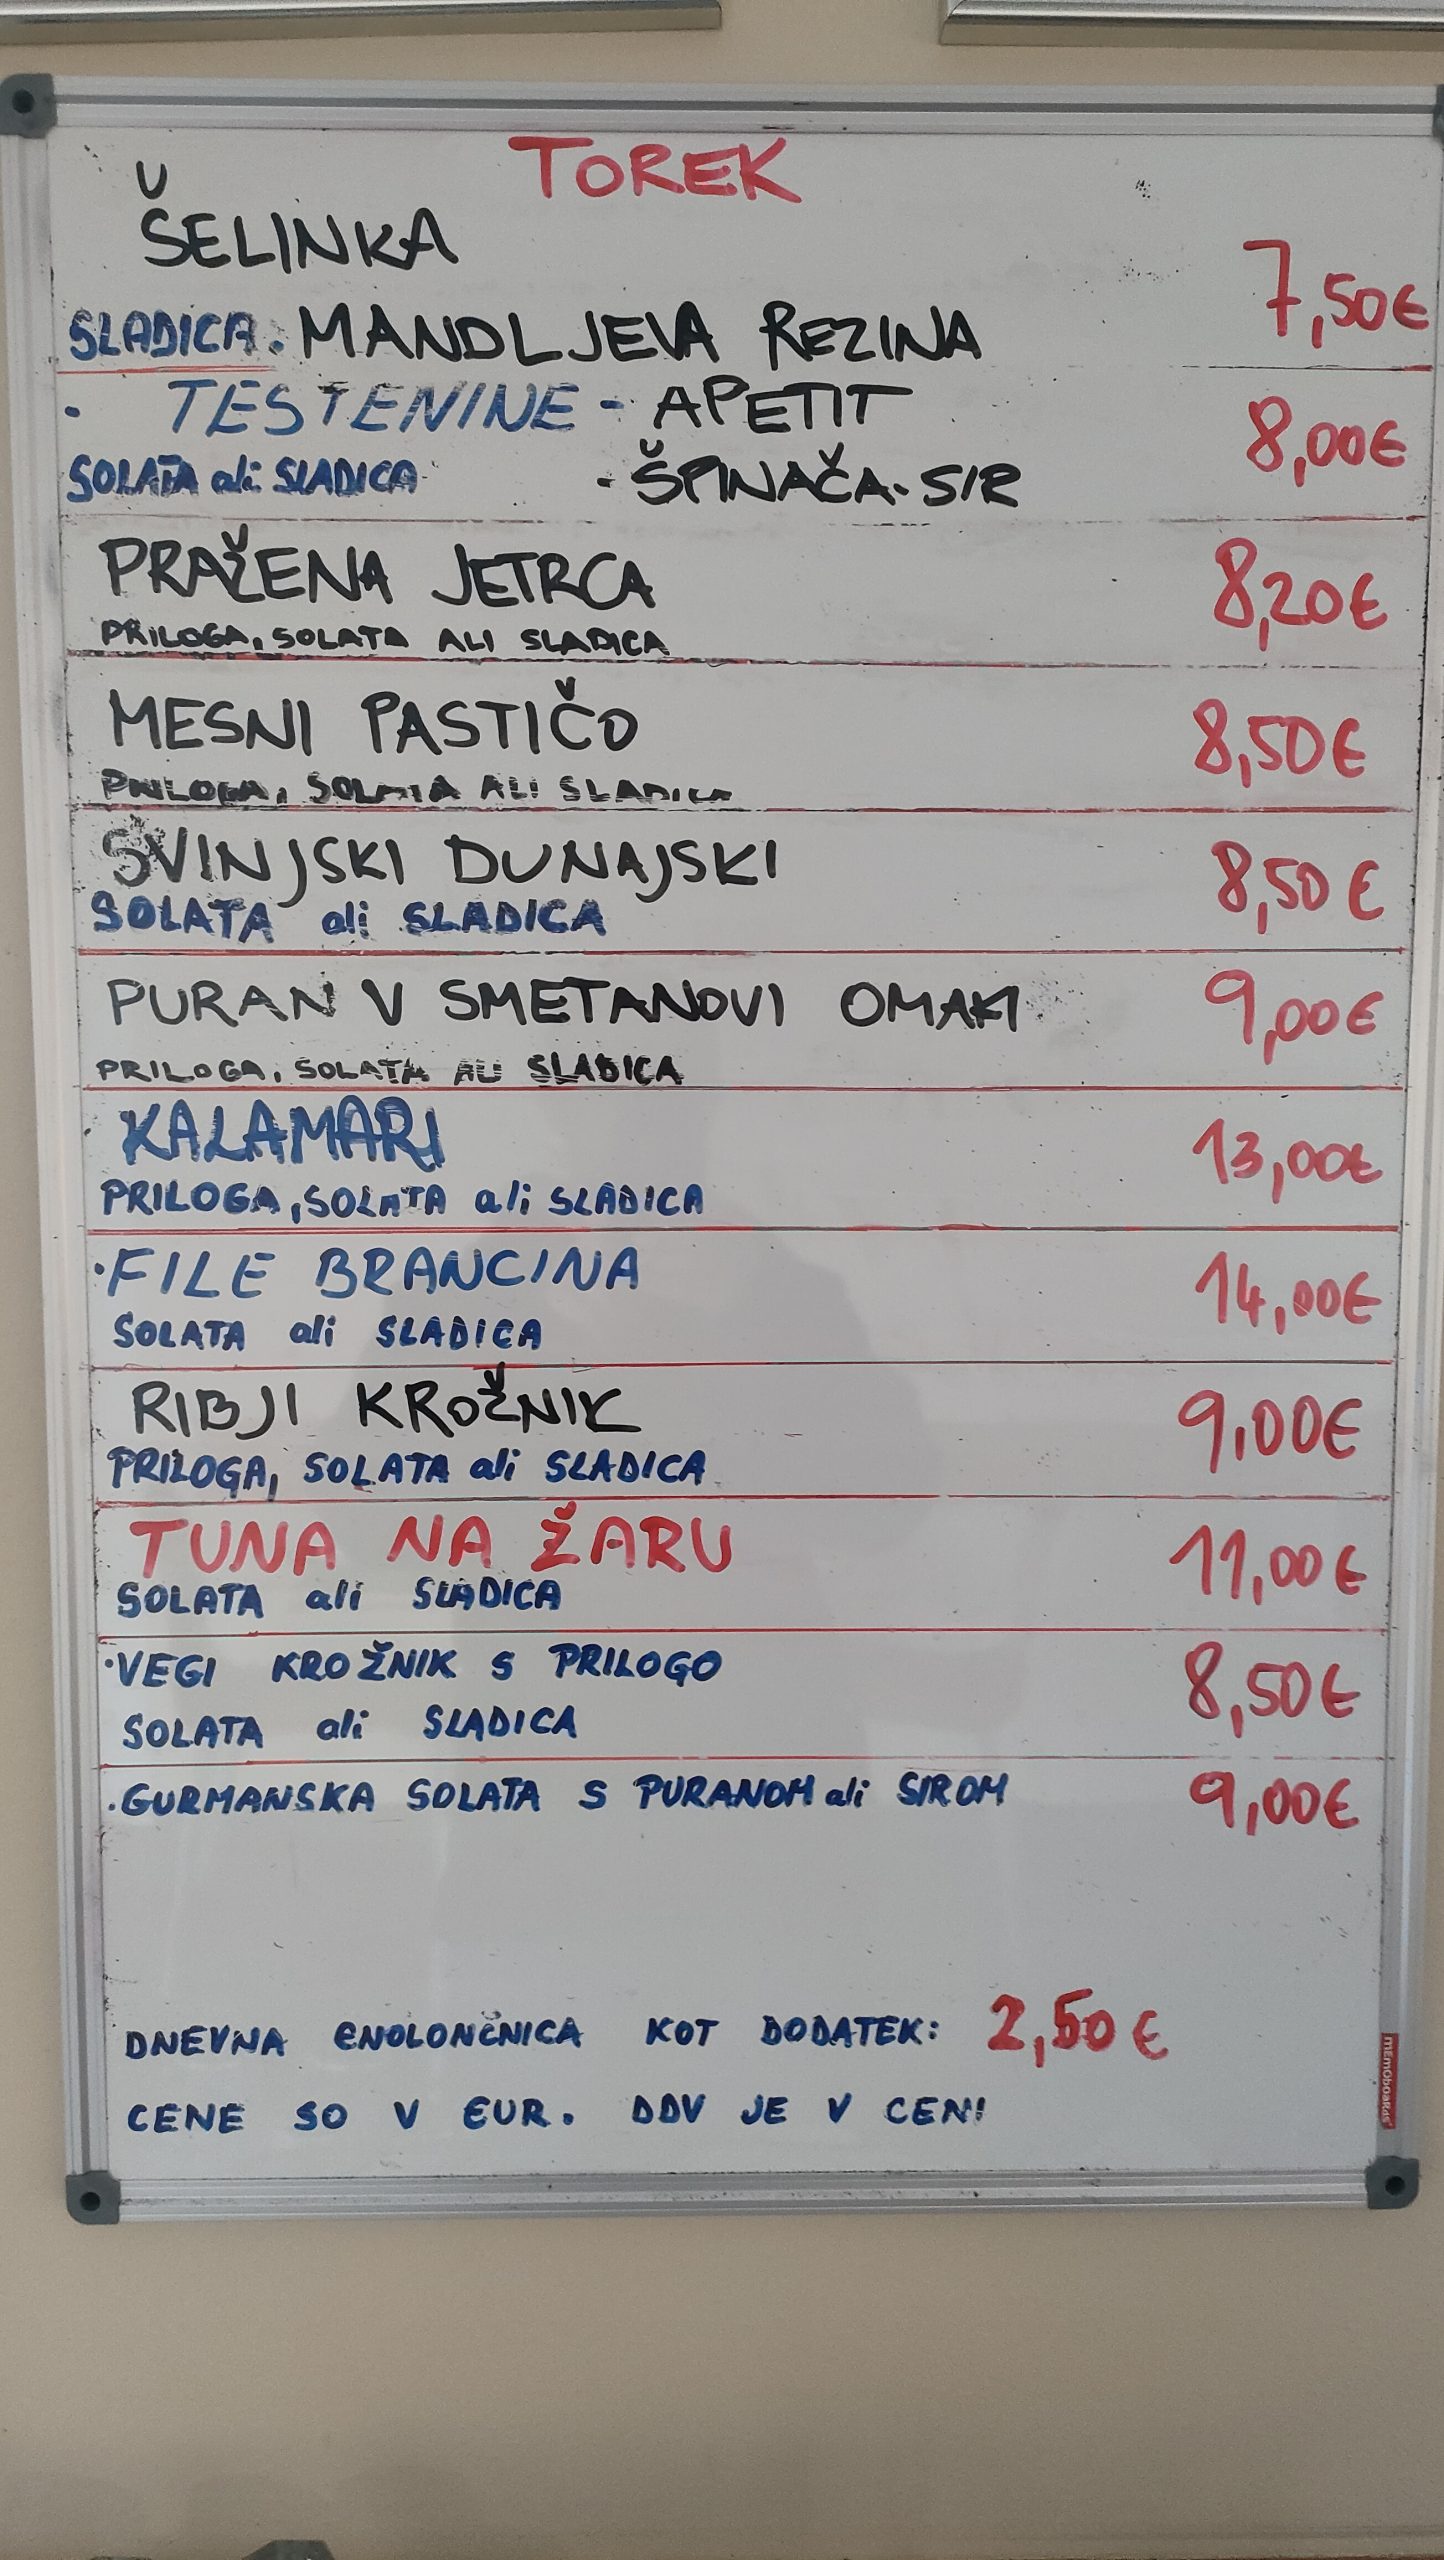 TOREK
ŠELINKA
7,50€
SLADICA: MANDLJEVA REZINA
· TESTENINE - APETIT
8,00€
SOLATA ali SLADICA - ŠPINAČA-SIR
PRAŽENA JETRCA 8,20€
PRILOGA, SOLATA ALI SLADICA
MESNI PASTIČO 8,50€
PRILOGA, SOLATA ALI SLADICA
SVINJSKI DUNAJSKI 8,50€
SOLATA ali SLADICA
PURAN V SMETANOVI OMAKI 9,00€
PRILOGA, SOLATA ALI SLADICA
KALAMARI 13,00€
PRILOGA, SOLATA ali SLADICA
· FILE BRANCINA 14,00€
SOLATA ali SLADICA
RIBJI KROŽNIK 9,00€
PRILOGA, SOLATA ali SLADICA
TUNA NA ŽARU 11,00€
SOLATA ali SLADICA
· VEGI KROŽNIK S PRILOGO 8,50€
SOLATA ali SLADICA
· GURMANSKA SOLATA S PURANOM ali SIROM 9,00€
DNEVNA ENOLONČNICA KOT DODATEK: 2,50€
CENE SO V EUR. DDV JE V CENI
mEmObOaRds